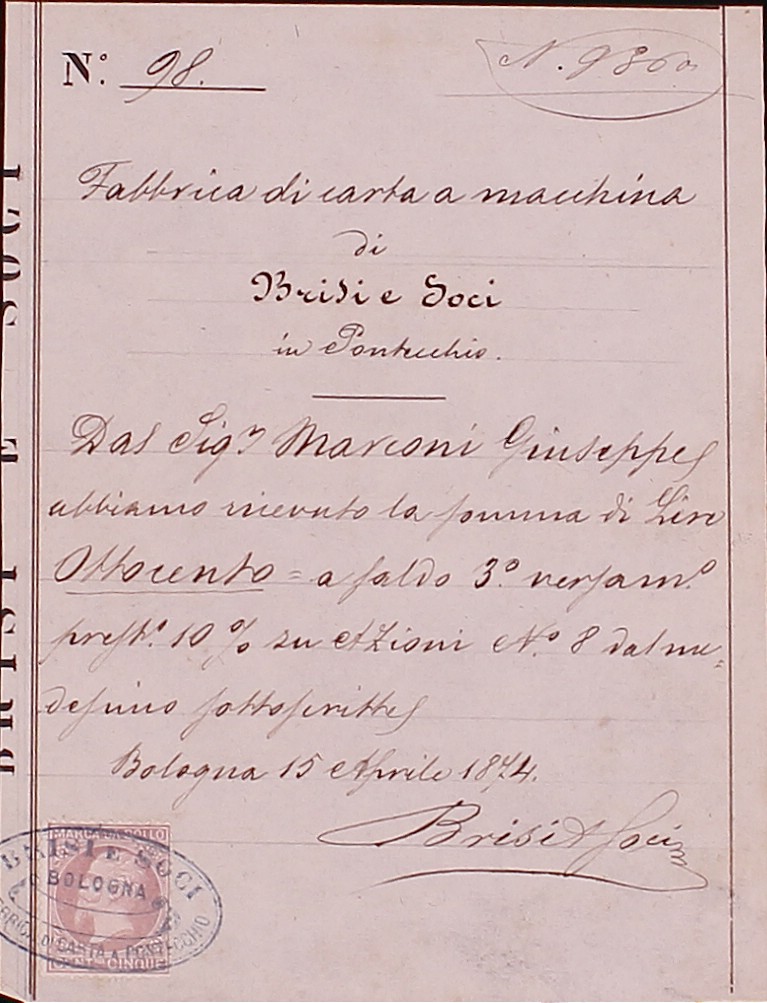 N.º 98.
N. 986
Fabbrica di carta a macchina
di
Brisi e Soci
in Pontecchio.
Dal Sig.r Marconi Giuseppe
abbiamo ricevuto la somma di Lire
Ottocento = a saldo 3.º versam.º
10 % su Azioni N.º 8 dal me=
desimo sottoscritte
Bologna 15 Aprile 1874.
Brisi & Soci
BRISI E SOCI
MARCA DA BOLLO
CENT. CINQUE
BRISI E SOCI
BOLOGNA
FABBRICA DI CARTA A PONTECCHIO